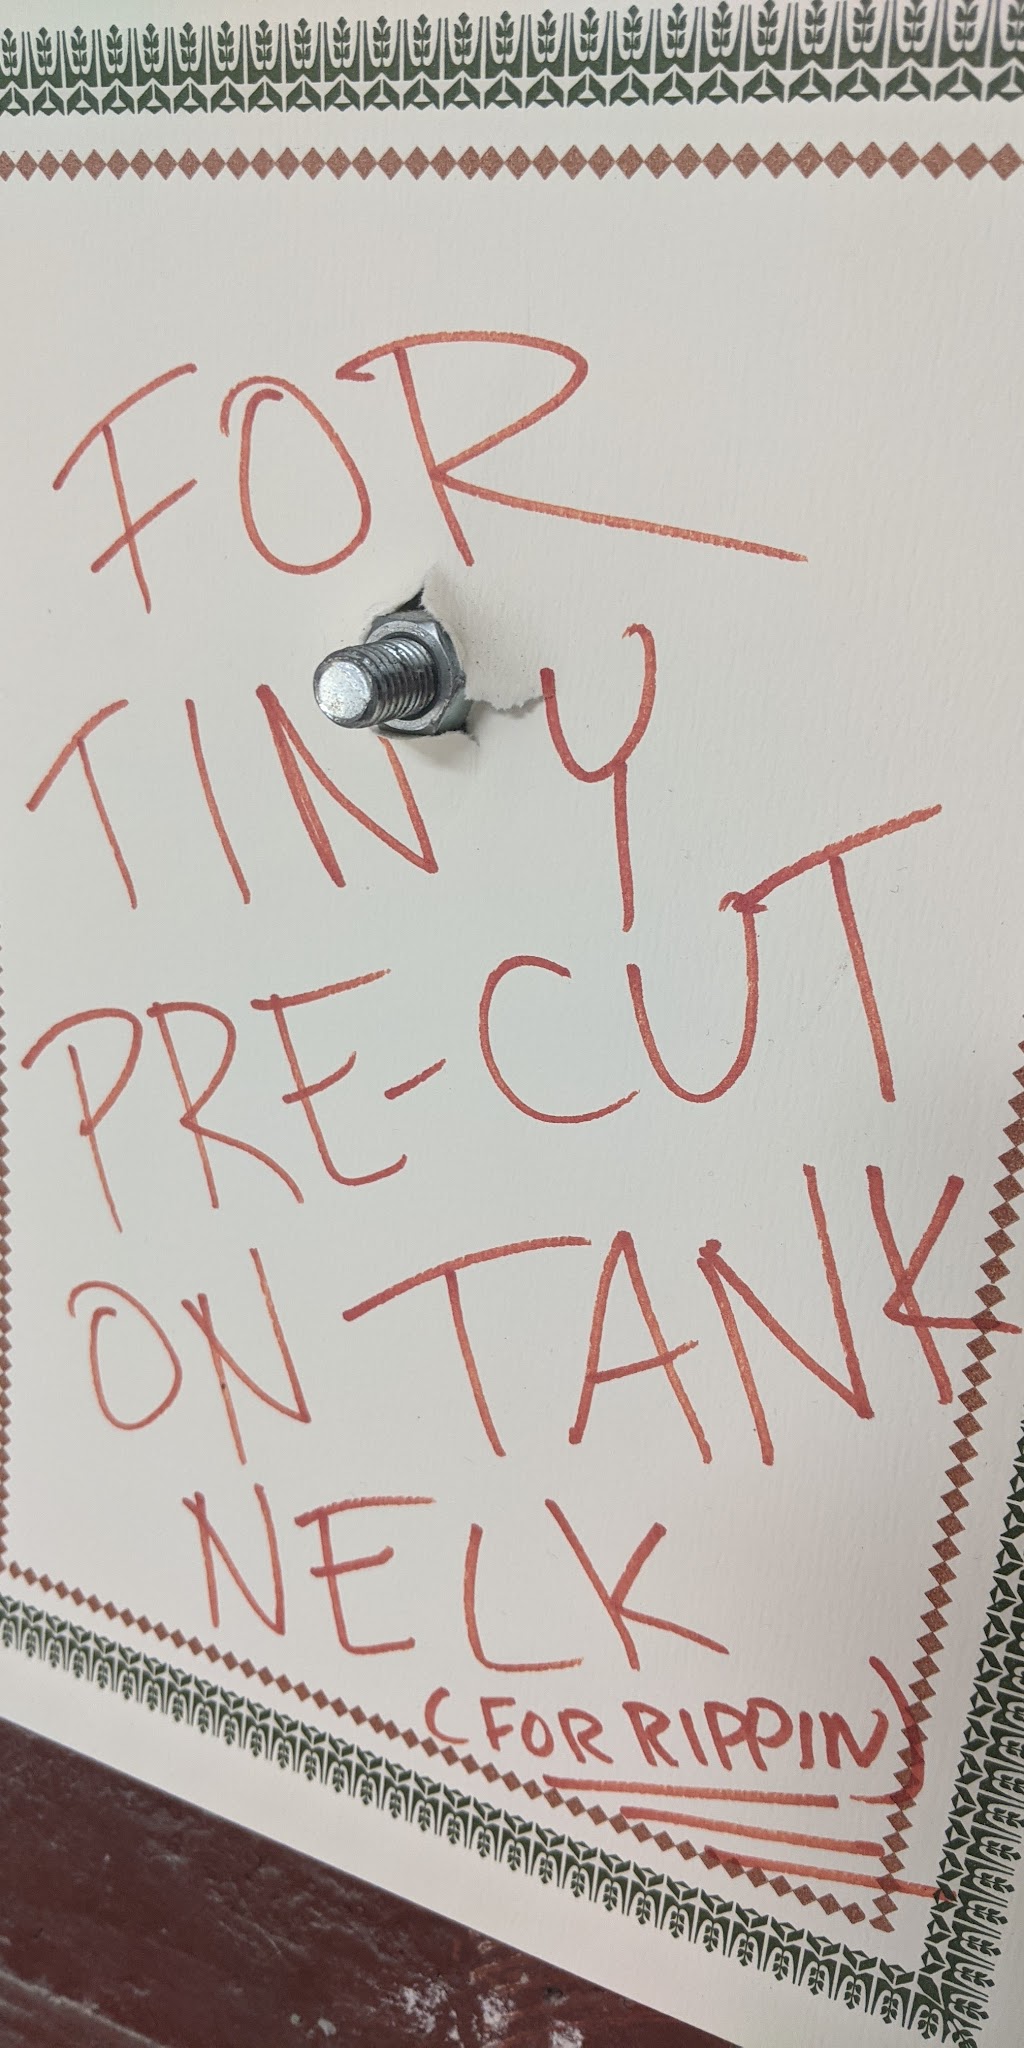 FOR
TINY
PRE-CUT
ON TANK
NELK
(FOR RIPPIN)